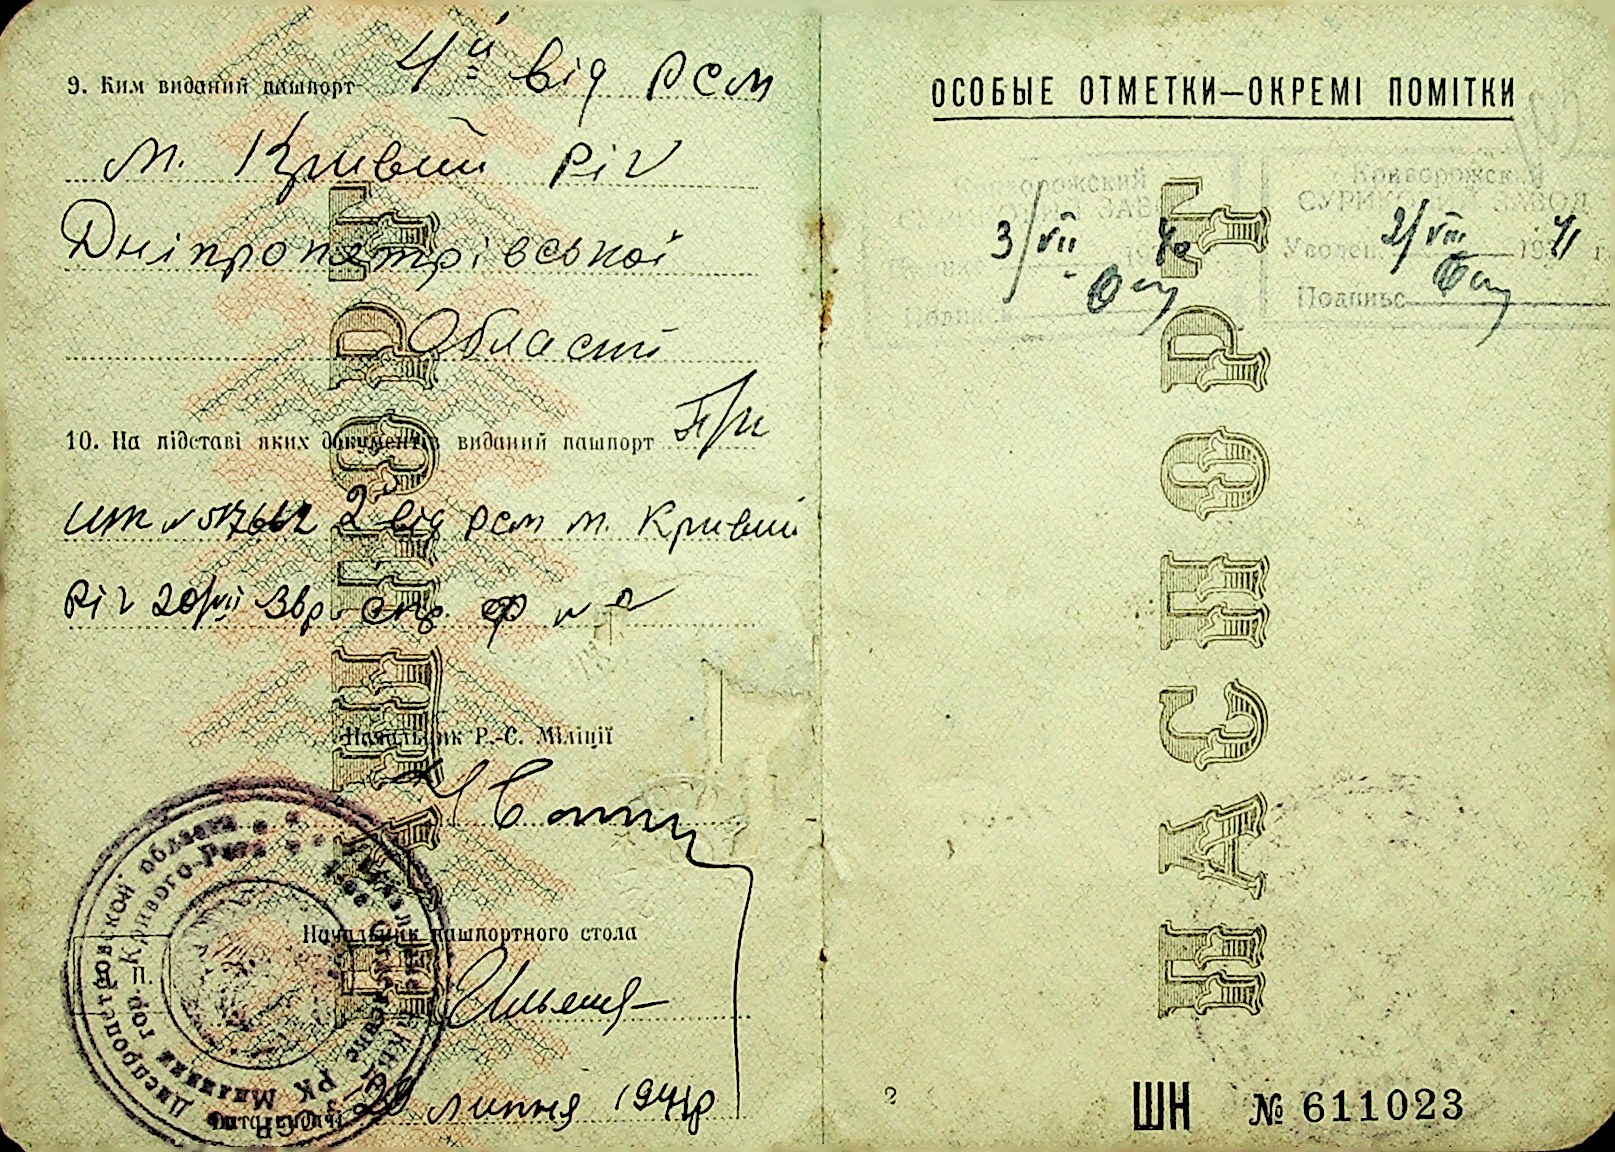 9. Ким виданий пашпорт 4й від РСМ
м. Кривий Ріг
Дніпропетрівської
Області
10. На підставі яких документів виданий пашпорт
2 від РСМ м. Кривий
Ріг 20/VII Звр. ф №
Начальник Р.-С. Міліції
Начальник пашпортного стола
липня 1941р
Днепропетровской области
гор. Кривого-Рога
РК Милиции
ПАШПОРТ
ОСОБЫЕ ОТМЕТКИ—ОКРЕМІ ПОМІТКИ
Криворожский
СУРИКОВЫЙ ЗАВ
3/VII 1940
Подпись
Криворожский
СУРИКОВЫЙ ЗАВОД
Уволен 2/VIII 1941 г.
Подпись
ПАСПОРТ
2
ШН № 611023